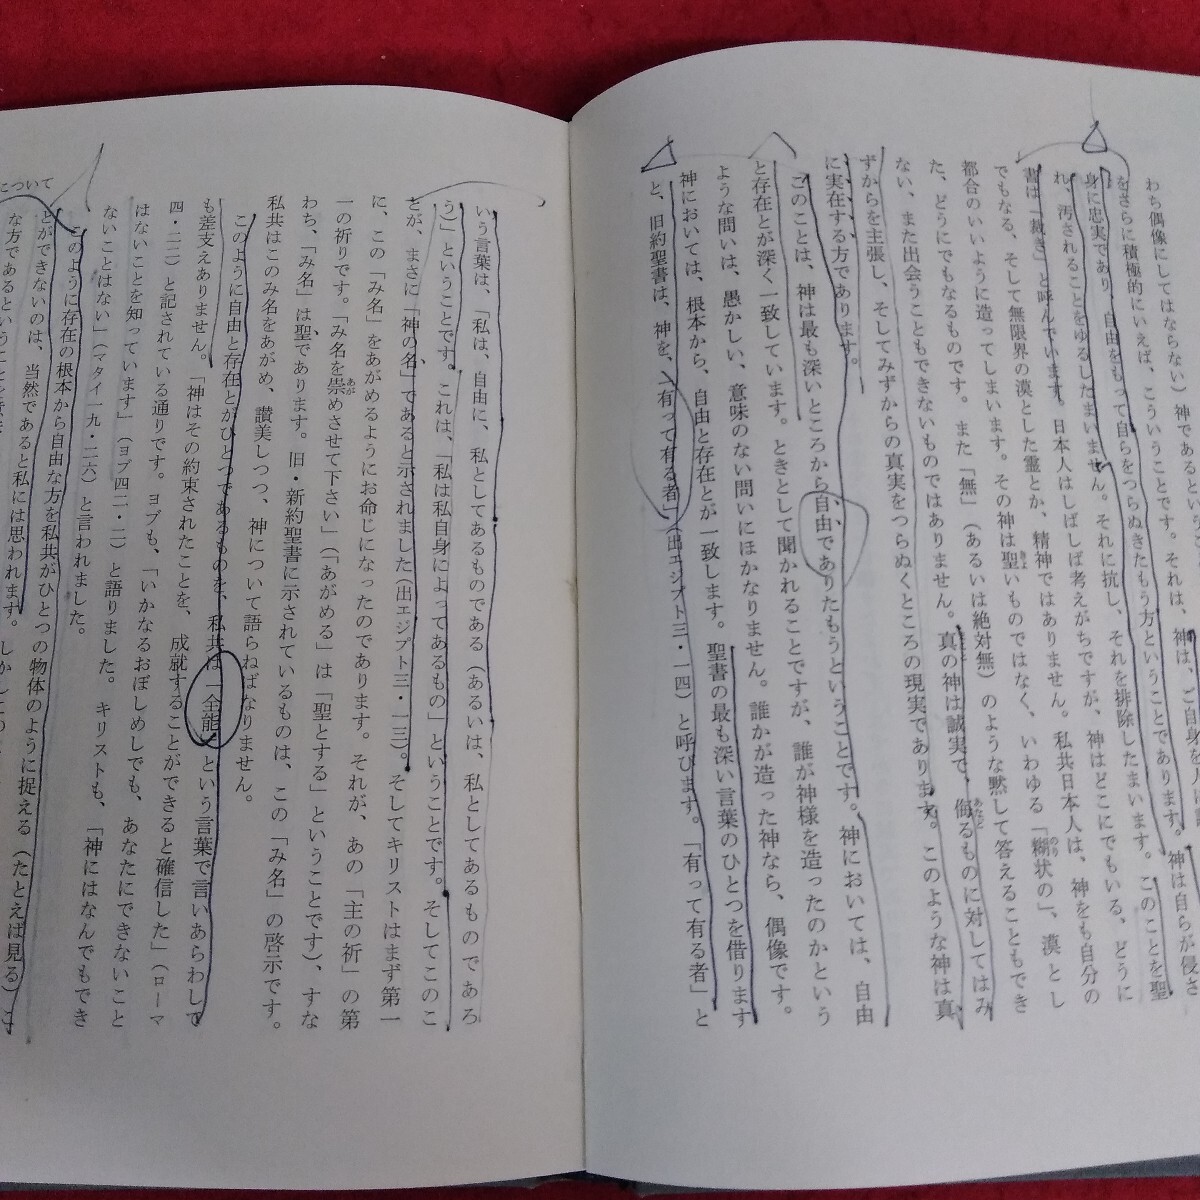 わち偶像にしてはならない）神であるという
をさらに積極的にいえば、こういうことです。それは、神は、ご自身を
身に忠実であり、自由をもって自らをつらぬきたもう方ということであります。神は自らが侵さ
れ、汚されることをゆるしたまいません。それに抗し、それを排除したまいます。このことを聖
書は「裁き」と呼んでいます。日本人はしばしば考えがちですが、神はどこにでもいる、どうに
でもなる、そして無限界の漠とした霊とか、精神ではありません。私共日本人は、神をも自分の
都合のいいように造ってしまいます。その神は聖いものではなく、いわゆる「糊状の」、漠とし
た、どうにでもなるものです。また「無」（あるいは絶対無）のような黙して答えることもでき
ない、また出会うこともできないものではありません。真の神は誠実で、侮るものに対してはみ
ずからを主張し、そしてみずからの真実をつらぬくところの現実であります。このような神は真
に実在する方であります。
このことは、神は最も深いところから自由でありたもうということです。神においては、自由
と存在とが深く一致しています。ときとして聞かれることですが、誰が神様を造ったのかという
ような問いは、愚かしい、意味のない問いにほかなりません。誰かが造った神なら、偶像です。
神においては、根本から、自由と存在とが一致します。聖書の最も深い言葉のひとつを借ります
と、旧約聖書は、神を、「有って有る者」（出エジプト三・一四）と呼びます。「有って有る者」と
いう言葉は、「私は、自由に、私としてあるものである（あるいは、私としてあるものであろ
う）」ということです。これは、「私は私自身によってあるもの」ということです。そしてこのこ
とが、まさに「神の名」であると示されました（出エジプト三・一三）。そしてキリストはまず第一
に、この「み名」をあがめるようにお命じになったのであります。それが、あの「主の祈」の第
一の祈りです。「み名を崇めさせて下さい」（「あがめる」は「聖とする」ということです）、すな
わち、「み名」は聖であります。旧・新約聖書に示されているものは、この「み名」の啓示です。
私共はこのみ名をあがめ、讃美しつつ、神について語らねばなりません。
このように自由と存在とがひとつであるものを、私共は「全能」という言葉で言いあらわして
も差支えありません。「神はその約束されたことを、成就することができると確信した」（ローマ
四・二二）と記されている通りです。ヨブも、「いかなるおぼしめしでも、あなたにできないこと
はないことを知っています」（ヨブ四二・二）と語りました。キリストも、「神にはなんでもでき
ないことはない」（マタイ一九・二六）と言われました。
このように存在の根本から自由な方を私共がひとつの物体のように捉える（たとえば見る）こ
とができないのは、当然であると私には思われます。しかしこの
な方であるということを
について